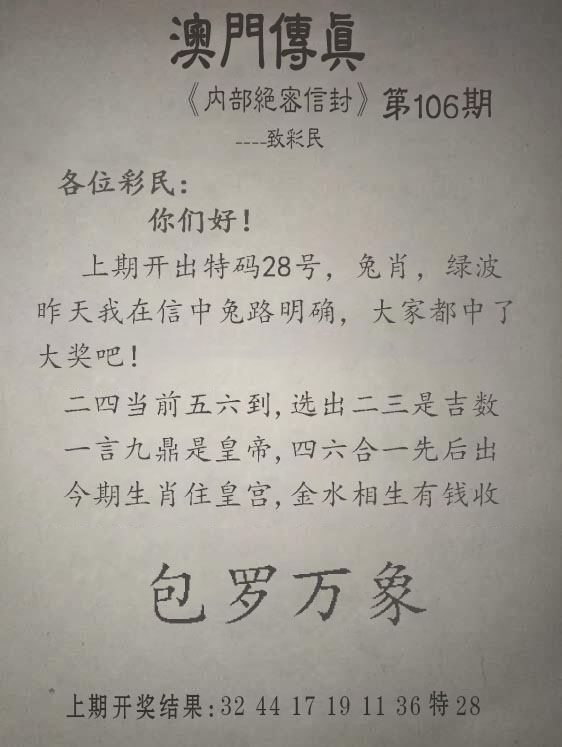 澳門傳真
《内部絕密信封》第106期
----致彩民
各位彩民：
你们好！
上期开出特码28号，兔肖，绿波
昨天我在信中兔路明确，大家都中了
大奖吧！
二四当前五六到,选出二三是吉数
一言九鼎是皇帝,四六合一先后出
今期生肖住皇宫,金水相生有钱收
包罗万象
上期开奖结果:32 44 17 19 11 36 特 28